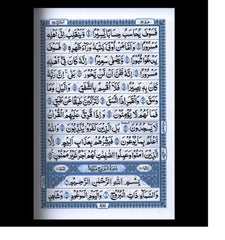 فَسَوْفَ يُحَاسَبُ حِسَابًا يَسِيرًا وَيَنْقَلِبُ إِلَىٰ أَهْلِهِ
مَسْرُورًا وَأَمَّا مَنْ أُوتِيَ كِتَابَهُ وَرَاءَ ظَهْرِهِ فَسَوْفَ
يَدْعُوا ثُبُورًا وَيَصْلَىٰ سَعِيرًا إِنَّهُ كَانَ فِي أَهْلِهِ
مَسْرُورًا إِنَّهُ ظَنَّ أَنْ لَنْ يَحُورَ بَلَىٰ إِنَّ رَبَّهُ
كَانَ بِهِ بَصِيرًا فَلَا أُقْسِمُ بِالشَّفَقِ وَاللَّيْلِ وَمَا
وَسَقَ وَالْقَمَرِ إِذَا اتَّسَقَ لَتَرْكَبُنَّ طَبَقًا عَنْ طَبَقٍ
فَمَا لَهُمْ لَا يُؤْمِنُونَ وَإِذَا قُرِئَ عَلَيْهِمُ الْقُرْآنُ
لَا يَسْجُدُونَ بَلِ الَّذِينَ كَفَرُوا يُكَذِّبُونَ وَاللَّهُ
أَعْلَمُ بِمَا يُوعُونَ فَبَشِّرْهُمْ بِعَذَابٍ أَلِيمٍ إِلَّا
الَّذِينَ آمَنُوا وَعَمِلُوا الصَّالِحَاتِ لَهُمْ أَجْرٌ غَيْرُ مَمْنُونٍ
بِسْمِ اللَّهِ الرَّحْمَٰنِ الرَّحِيمِ
وَالسَّمَاءِ ذَاتِ الْبُرُوجِ وَالْيَوْمِ الْمَوْعُودِ وَشَاهِدٍ